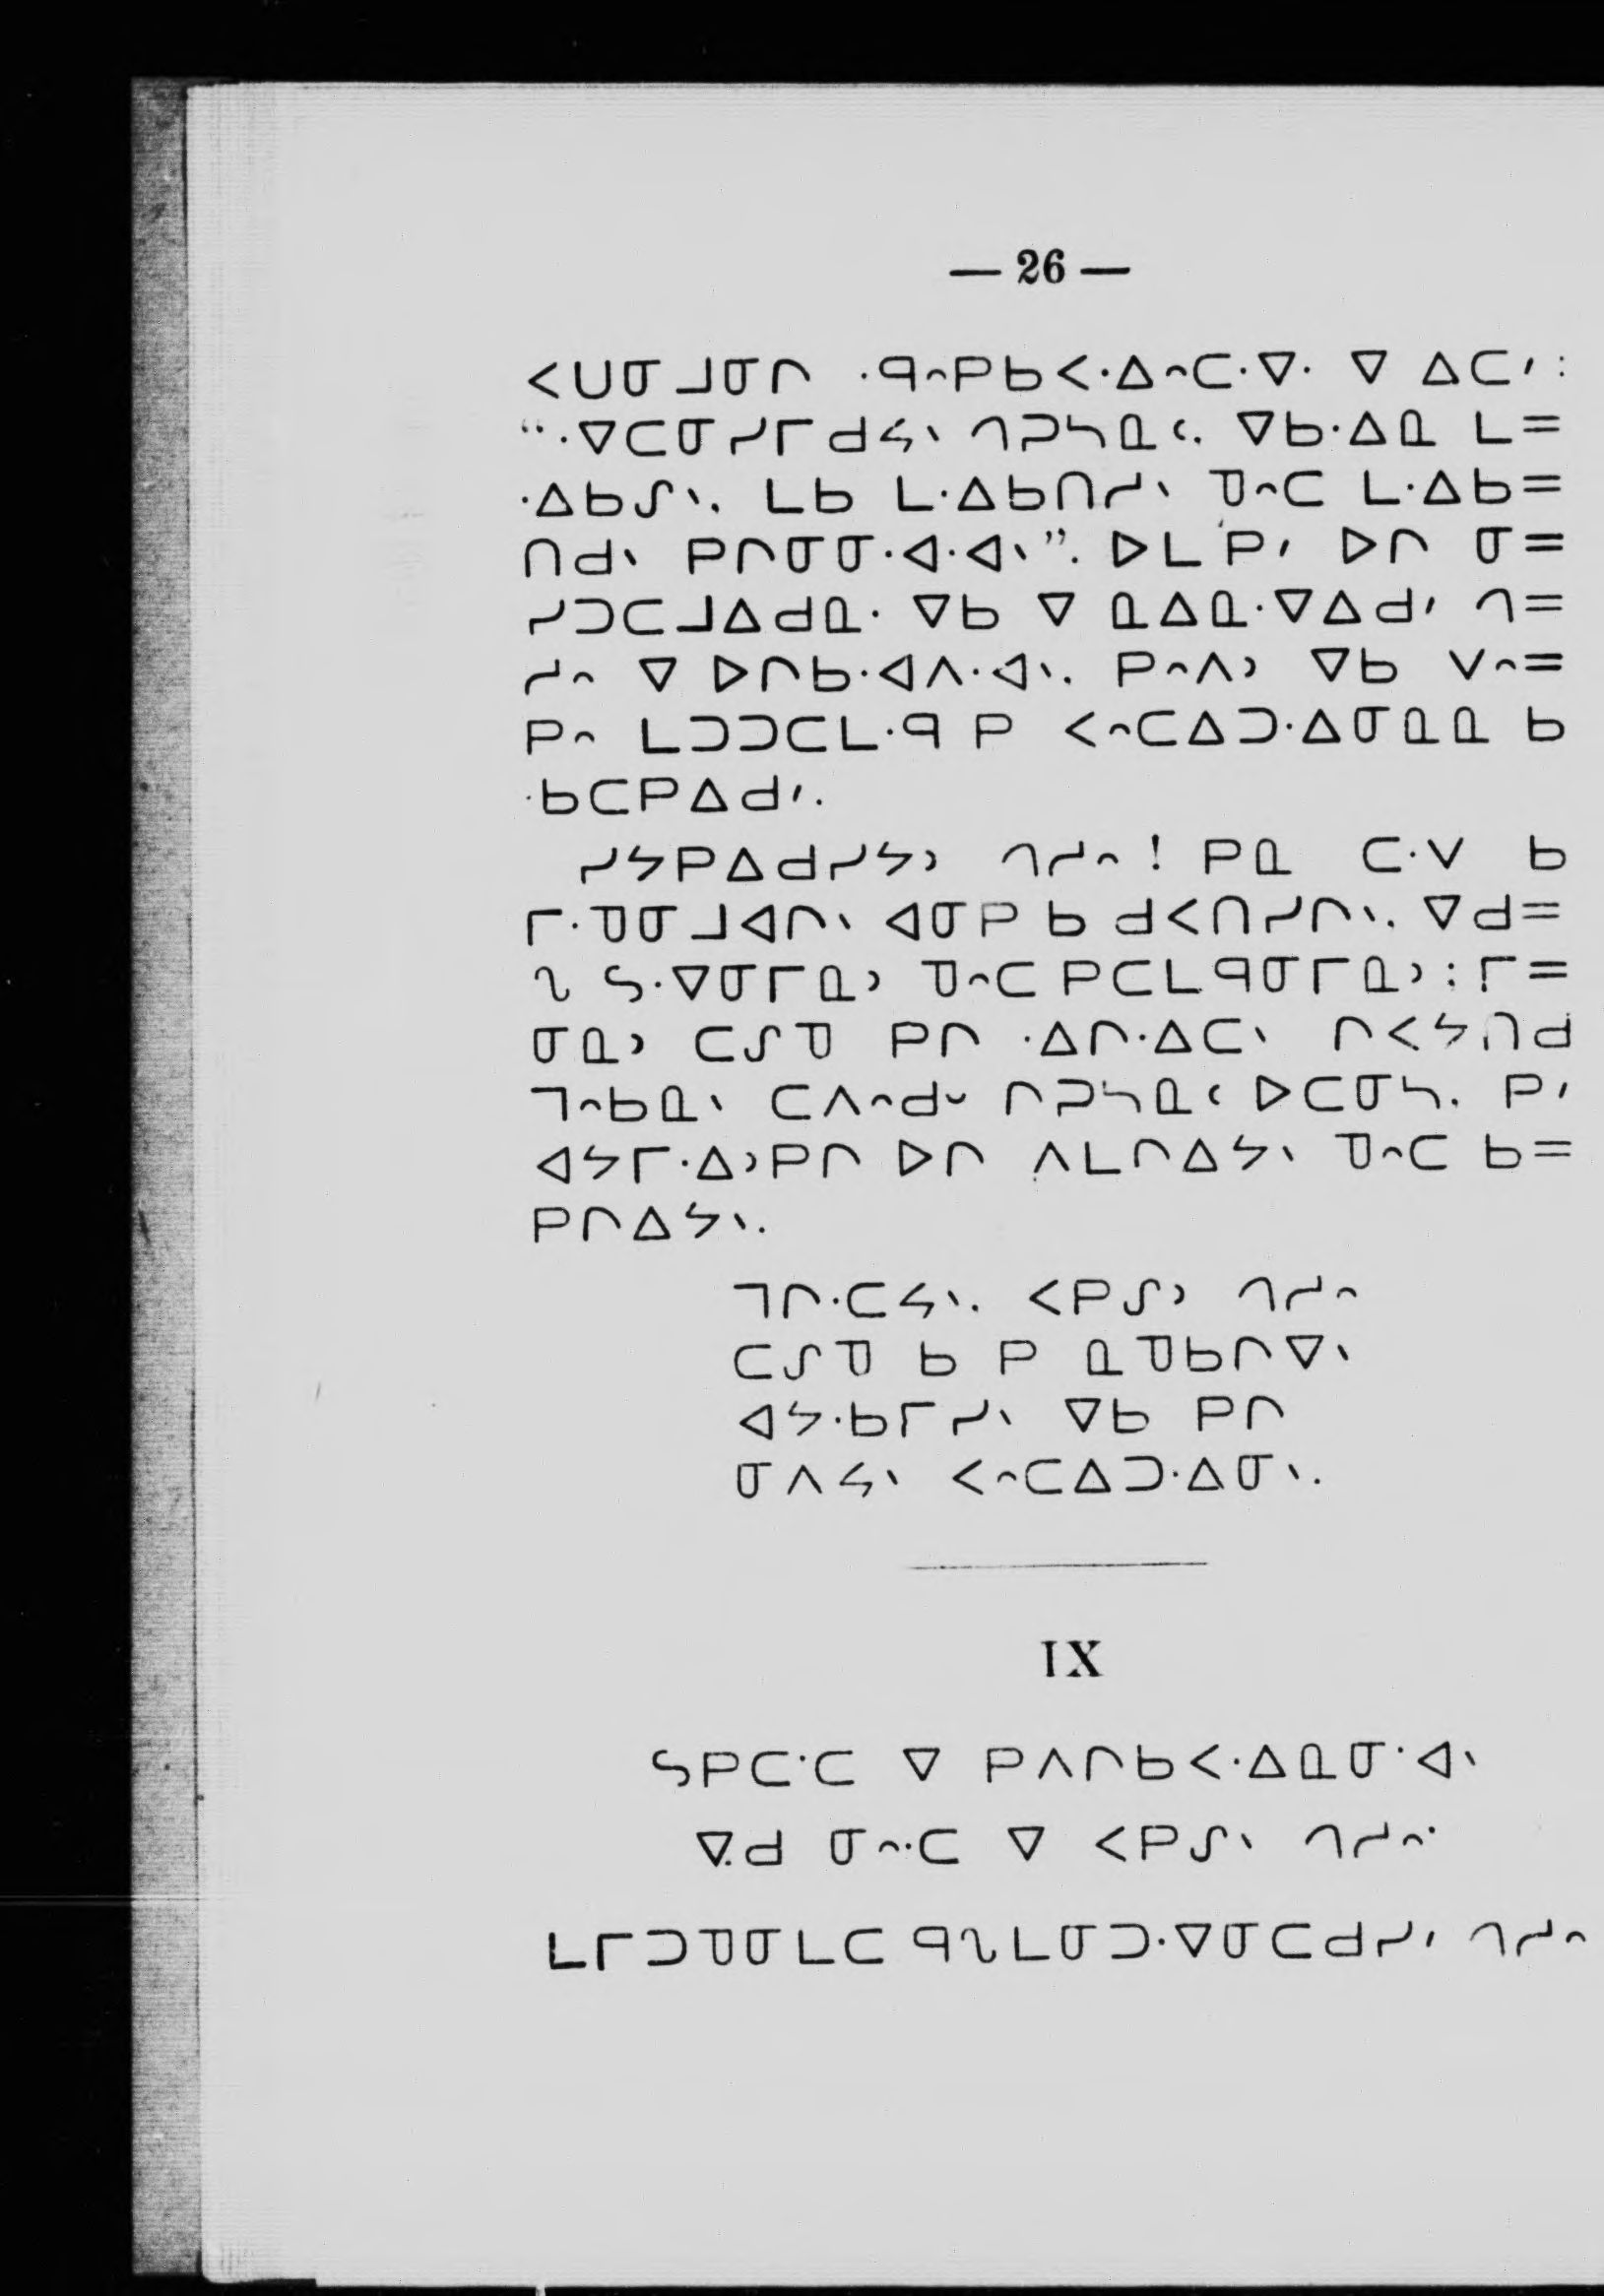 — 26 —
ᐸᑌᓂᒧᓂᒋ ·ᑫᐢᑭᑲᐸ·ᐃᐢᑕ·ᐁ· ᐁ ᐃᑕᐟ:
“·ᐁᑕᓂᓯᒥᑯᔦᐠ ᒉᑐᓴᓇᑦ. ᐁᑲ·ᐃᓇ ᒪ=
·ᐃᑲᔑᐠ. ᒪᑲ ᒪ·ᐃᑲᑎᓱᐠ ᑫᐢᑕ ᒪ·ᐃᑲ=
ᑎᑯᐠ ᑭᒋᓂᓂ·ᐊ·ᐊᐠ”. ᐅᒪ ᑭᐟ ᐅᒋ ᓂ=
ᓯᑐᑕᒧᐃᑯᓇ· ᐁᑲ ᐁ ᓇᐃᓇ·ᐁᐃᑯᐟ ᒉ=
ᓱᐢ ᐁ ᐅᒋᑲ·ᐊᐱ·ᐊᐠ. ᑭᐢᐱᐣ ᐁᑲ ᐯᐢ=
ᑭᐢ ᒪᑐᑐᑕᒪ·ᑫ ᑭ ᐸᐢᑕᐃᑐ·ᐃᓂᓇᓇ ᑲ
·ᑲᑕᑭᐃᑯᐟ.
ᓯᔭᑭᐃᑯᓯᔭᐣ ᒉᓱᐢ! ᑭᓇ ᑕ·ᐯ ᑲ
ᒥ·ᑌᓂᒧᐊᒋᐠ ᐊᓂᑭ ᑲ ᑯᐸᑎᓯᒋᐠ. ᐁᑯ=
ᔐ ᓭ·ᐁᓂᒥᓇᐣ ᑫᐢᑕ ᑭᑕᒪᑫᓂᒥᓇᐣ: ᒥ=
ᓂᓇᐣ ᑕᔑᑌ ᑭᒋ ·ᐃᒋ·ᐃᑕᐠ ᒋᐸᔭᑎᑯ
ᒣᐢᑲᓇᐠ ᑕᐱᐢᑯᐨ ᒋᑐᓴᓇᑦ ᐅᑕᓂᓴ. ᑭᐟ
ᐊᔭᒥ·ᐃᐣᑭᒋ ᐅᒋ ᐱᒪᒋᐃᔭᐠ ᑌᐢᑕ ᑲ=
ᑭᒋᐃᔭᐠ.
ᒣᒋ·ᑕᔦᐠ. ᐸᑭᔑᐣ ᒉᓱᐢ
ᑕᔑᑌ ᑲ ᑭ ᓇᑌᑲᒋᐁᐠ
ᐊᔭ·ᑲᒥᓯᐠ ᐁᑲ ᑭᒋ
ᓂᐱᔦᐠ ᐸᐢᑕᐃᑐ·ᐃᓂᐠ.
IX
ᓭᑭᑕ·ᑕ ᐁ ᑭᐱᒋᑲᐸ·ᐃᓇᓂ·ᐊᐠ
ᐁᑯ ᓂᐢ·ᑕ ᐁ ᐸᑭᔑᐠ ᒉᓱᐢ
ᒪᒥᑐᑌᓂᒪᑕ ᑫᔐᒪᓂᑐ·ᐁᓂᑕᑯᓯᐟ ᒉᓱᐢ